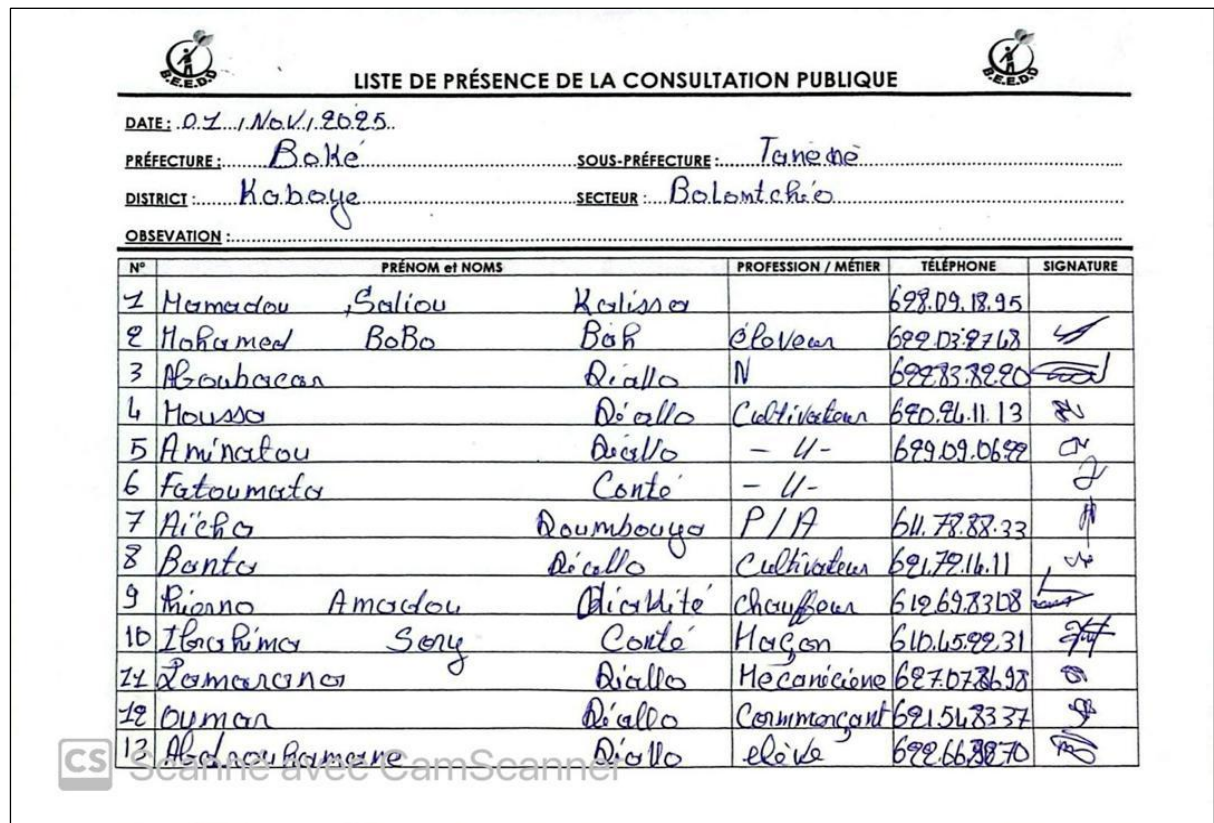 B.E.E.D.D
B.E.E.D.D
LISTE DE PRÉSENCE DE LA CONSULTATION PUBLIQUE
DATE : 01 / Nov / 2025
PRÉFECTURE : Boké SOUS-PRÉFECTURE : Tanènè
DISTRICT : Kaboye SECTEUR : Bolomtchéo
OBSEVATION :
N° PRÉNOM et NOMS PROFESSION / MÉTIER TÉLÉPHONE SIGNATURE
1 Mamadou Saliou Kalissa 628.09.18.95
2 Mohamed BoBo Bah éleveur 622.03.27.68
3 Aboubacar Diallo N 622.83.82.20
4 Moussa Diallo Cultivateur 620.26.11.13
5 Aminatou Diallo - 11 - 629.09.0622
6 Fatoumata Conté - 11 -
7 Aïcha Doumbouya P/A 611.78.88.33
8 Banta Diallo Cultivateur 621.72.16.11
9 Amadou Diakité chauffeur 612.69.8308
10 Ibrahima Sory Conté Maçon 610.45.22.31
11 Lamarana Diallo Mécaniciène 627.07.86.98
12 Oymar Diallo Commerçant 621548337
13 Abdrouhamane Diallo elève
CS Scanné avec CamScanner